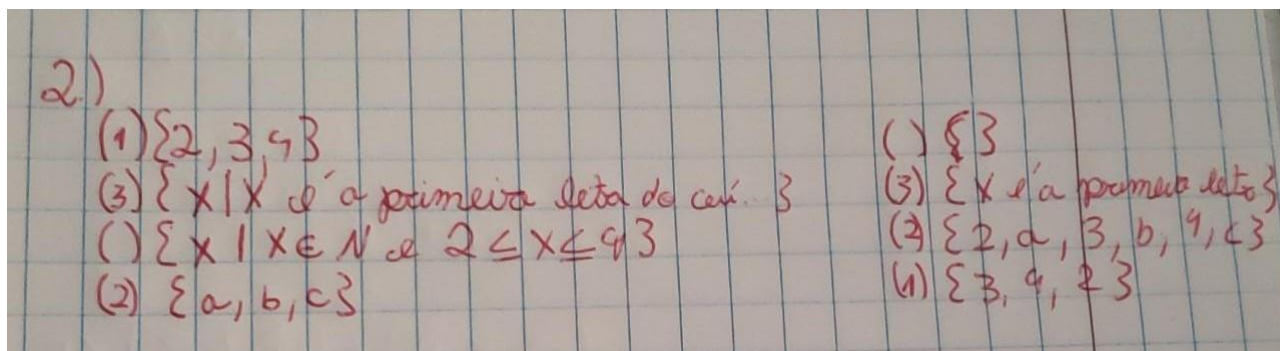 2.)
(1) {2, 3, 4}
(3) {x | x é a primeira leta do
( ) {x | x ∈ N e 2 ≤ x ≤ 4}
(2) {a, b, c}
( ) { }
(3) {x é a primeira leto}
(2) {2, a, 3, b, 4, c}
(1) {3, 4, 2}